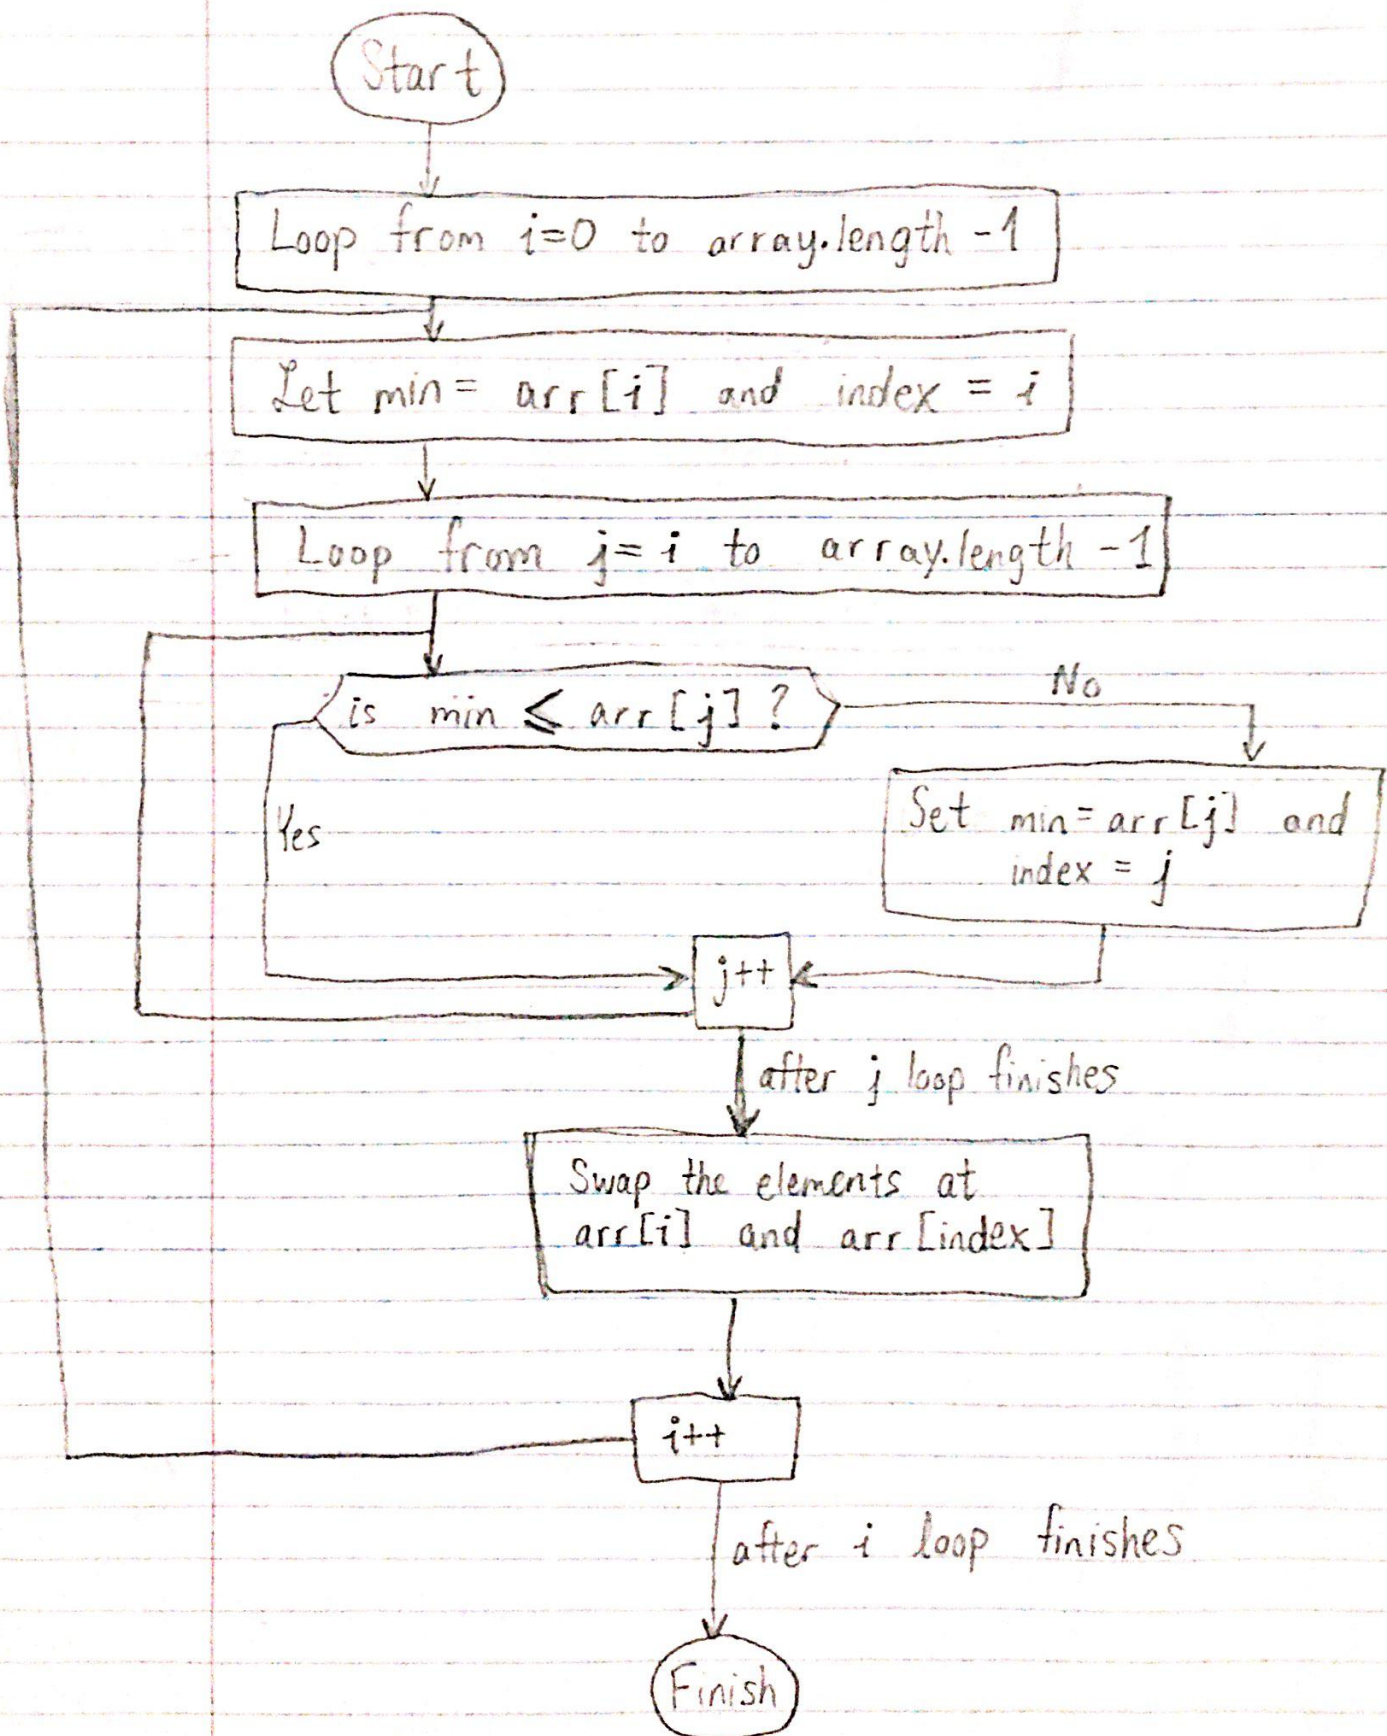 Start
Loop from i=0 to array.length -1
Let min = arr[i] and index = i
Loop from j= i to array.length -1
is min ⩽ arr[j] ?
No
Yes
Set min=arr[j] and
index = j
j++
after j loop finishes
Swap the elements at
arr[i] and arr[index]
i++
after i loop finishes
Finish